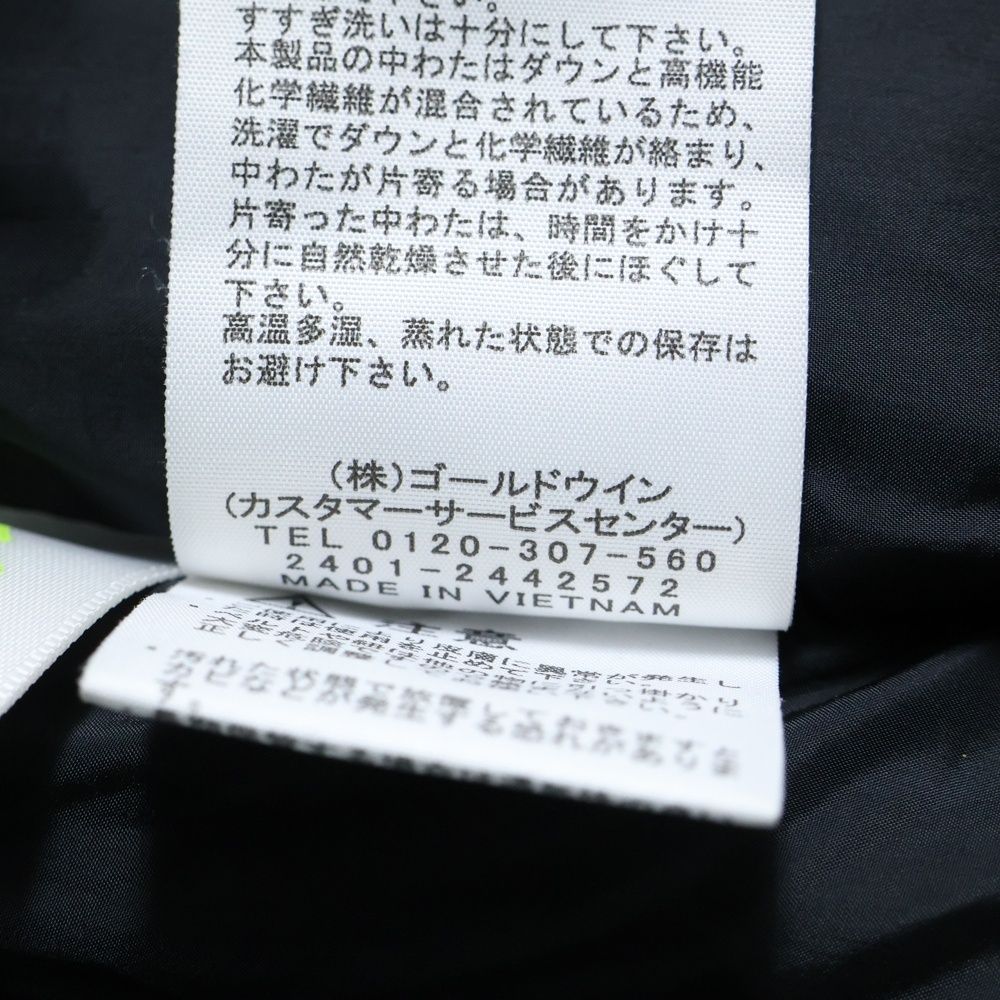 すすぎ洗いは十分にして下さい。
本製品の中わたはダウンと高機能
化学繊維が混合されているため、
洗濯でダウンと化学繊維が絡まり、
中わたが片寄る場合があります。
片寄った中わたは、時間をかけ十
分に自然乾燥させた後にほぐして
下さい。
高温多湿、蒸れた状態での保存は
お避け下さい。
(株)ゴールドウイン
(カスタマーサービスセンター)
TEL 0120-307-560
2401-2442572
MADE IN VIETNAM
注意
皮膚に異常が発生し
正しく調整し
汚れた状態で放置しておきますと
カビなどが発生する恐れがありま
す。